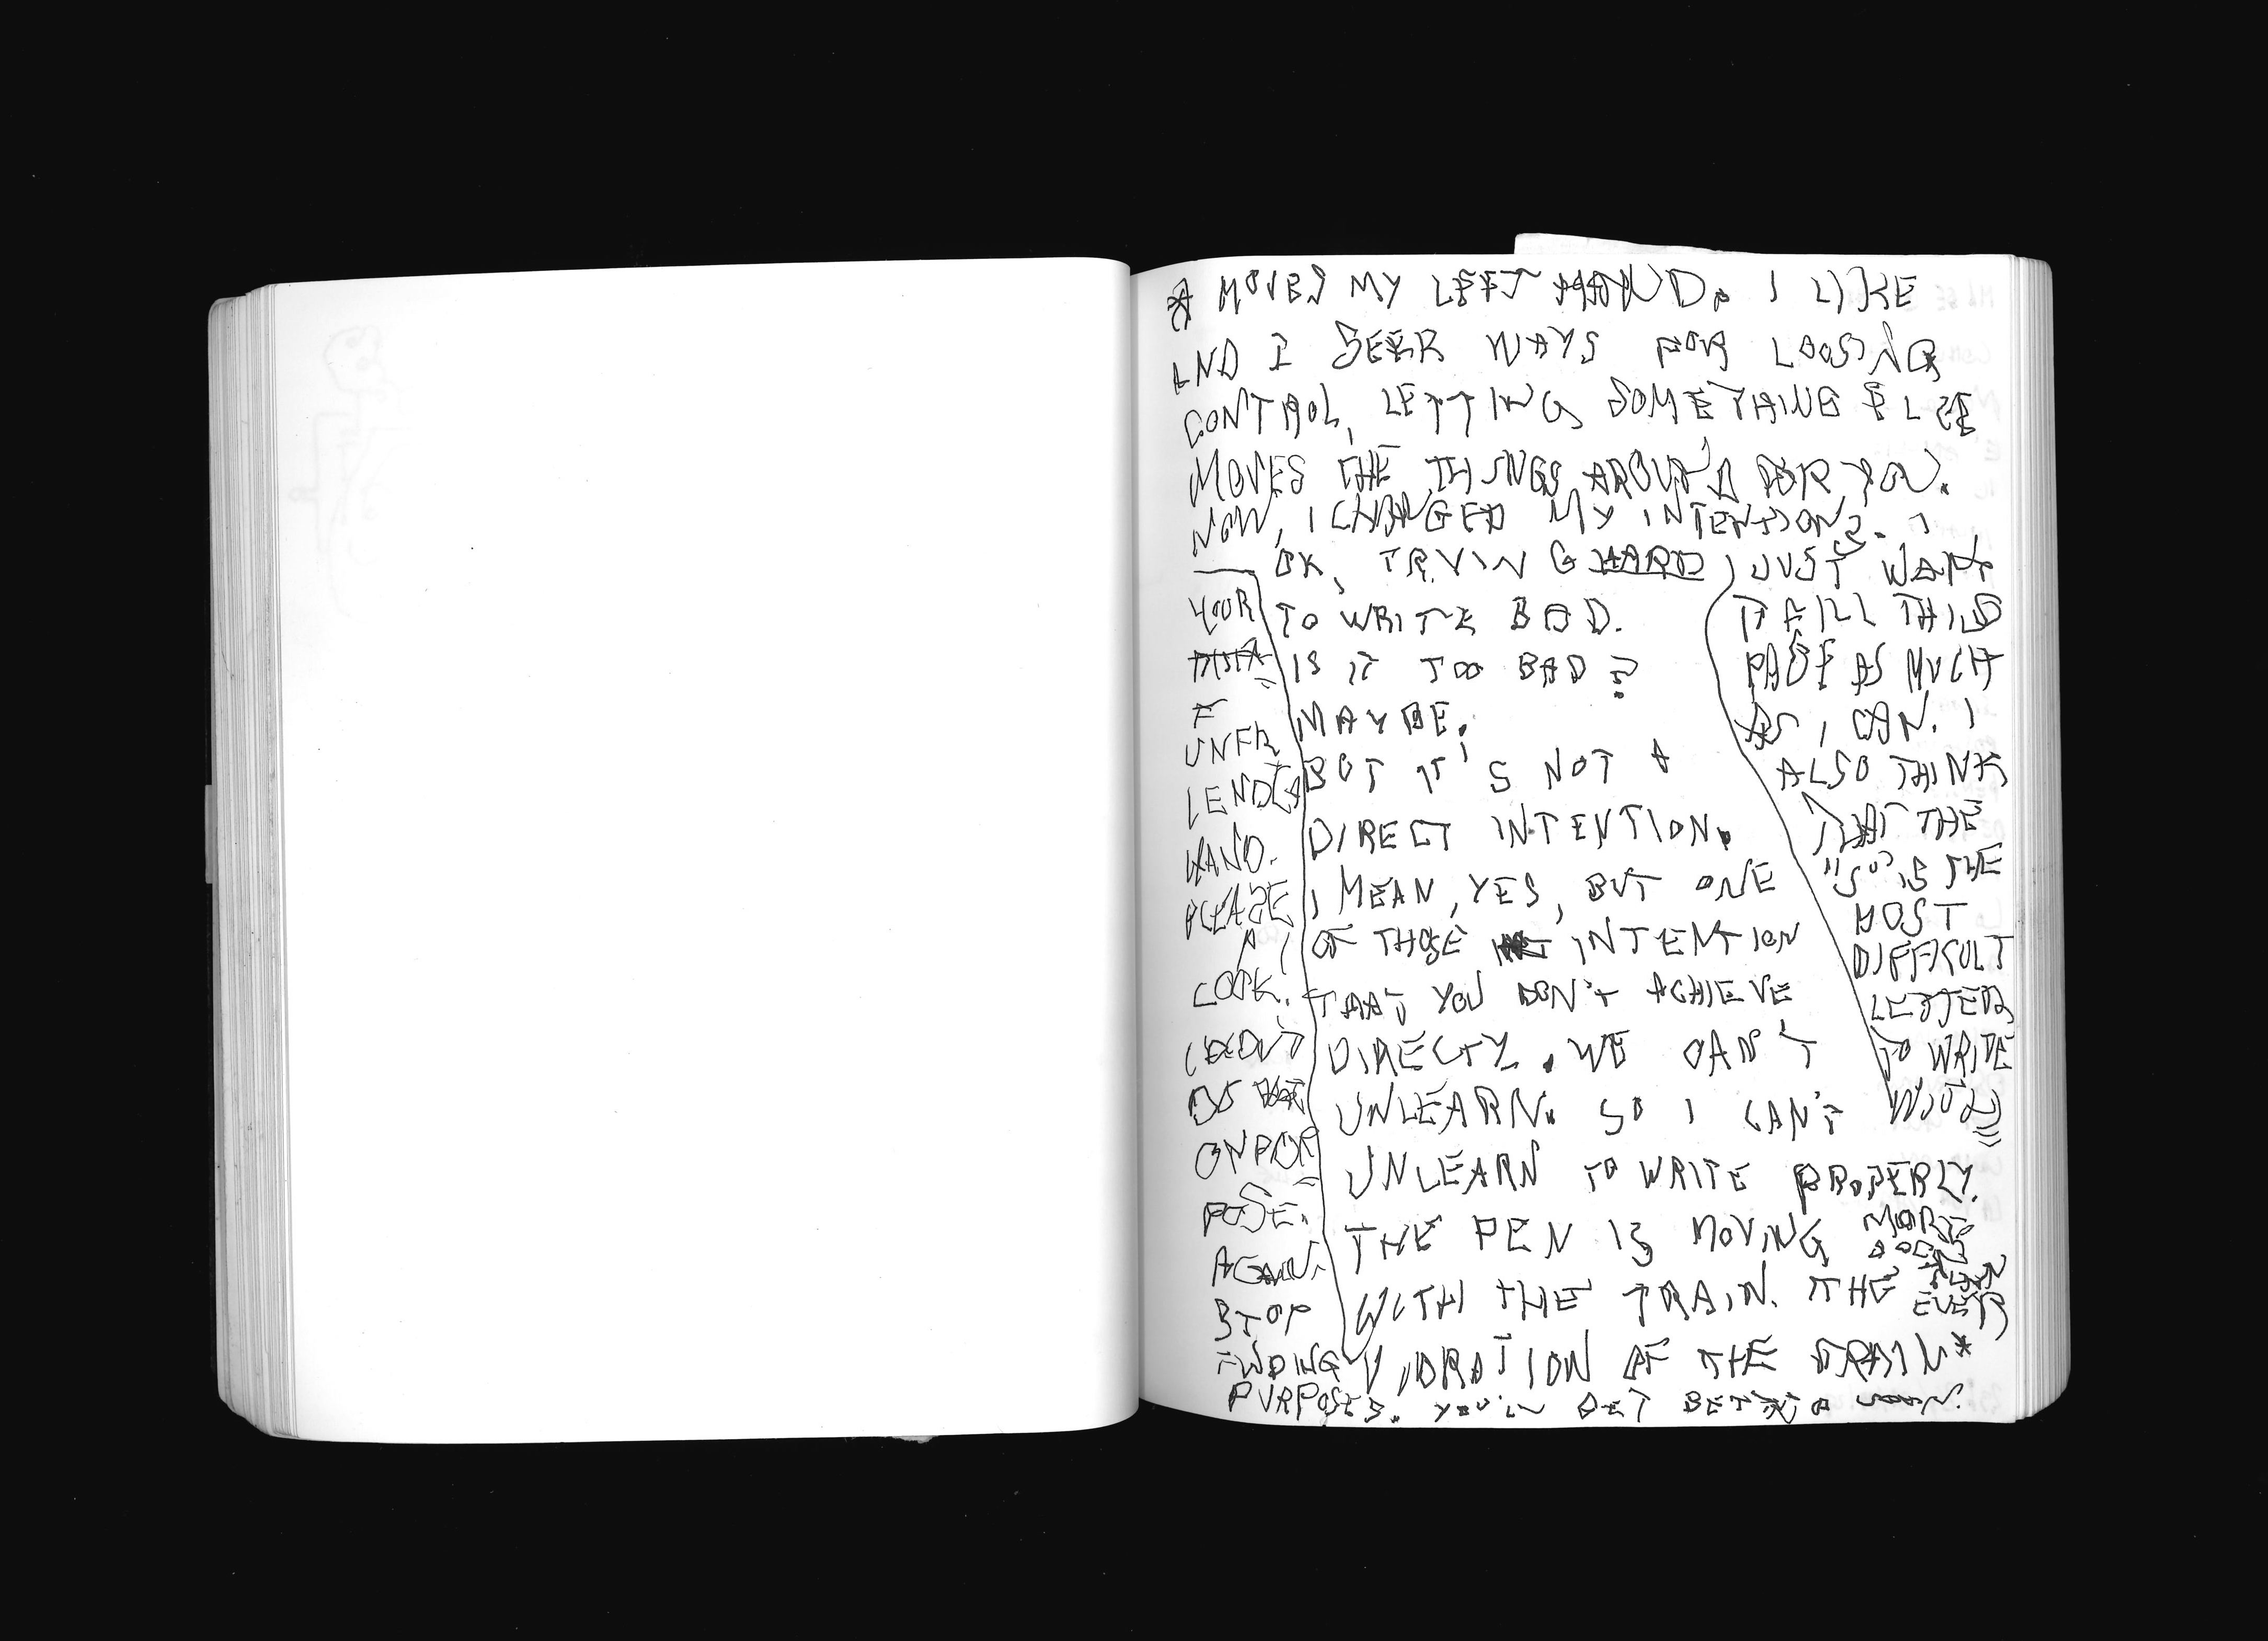 * MOVES MY LEFT HAND. I LIKE
AND I SEEK WAYS FOR LOOSING
CONTROL, LETTING SOMETHING ELSE
MOVES THE THINGS AROUND FOR YOU.
NOW, I CHANGED MY INTENTIONS. I
OK, TRYING HARD
TO WRITE BAD.
IS IT TOO BAD?
MAYBE.
BUT IT'S NOT A
DIRECT INTENTION.
I MEAN, YES, BUT ONE
OF THOSE INTENTION
THAT YOU DON'T ACHIEVE
DIRECTY. WE CAN'T
UNLEARN. SO I CAN'T
UNLEARN TO WRITE PROPERLY.
THE PEN IS MOVING
WITH THE TRAIN. THE
VIBRATION OF THE TRAIN*
JUST WANT
TO FILL THIS
PAGE AS MUCH
AS I CAN. I
ALSO THINK
THAT THE
"S" IS THE
MOST
DIFFICULT
LETTER
TO WRITE
WITH
MORE
THAN
EVER
YOUR
F
UNFR
IENDLY
HAND.
PLEASE
LOOK.
DO
ON PUR
POSE.
AGAIN.
STOP
FINDING
PURPOSES. YOU'LL GET BETTER SOON.